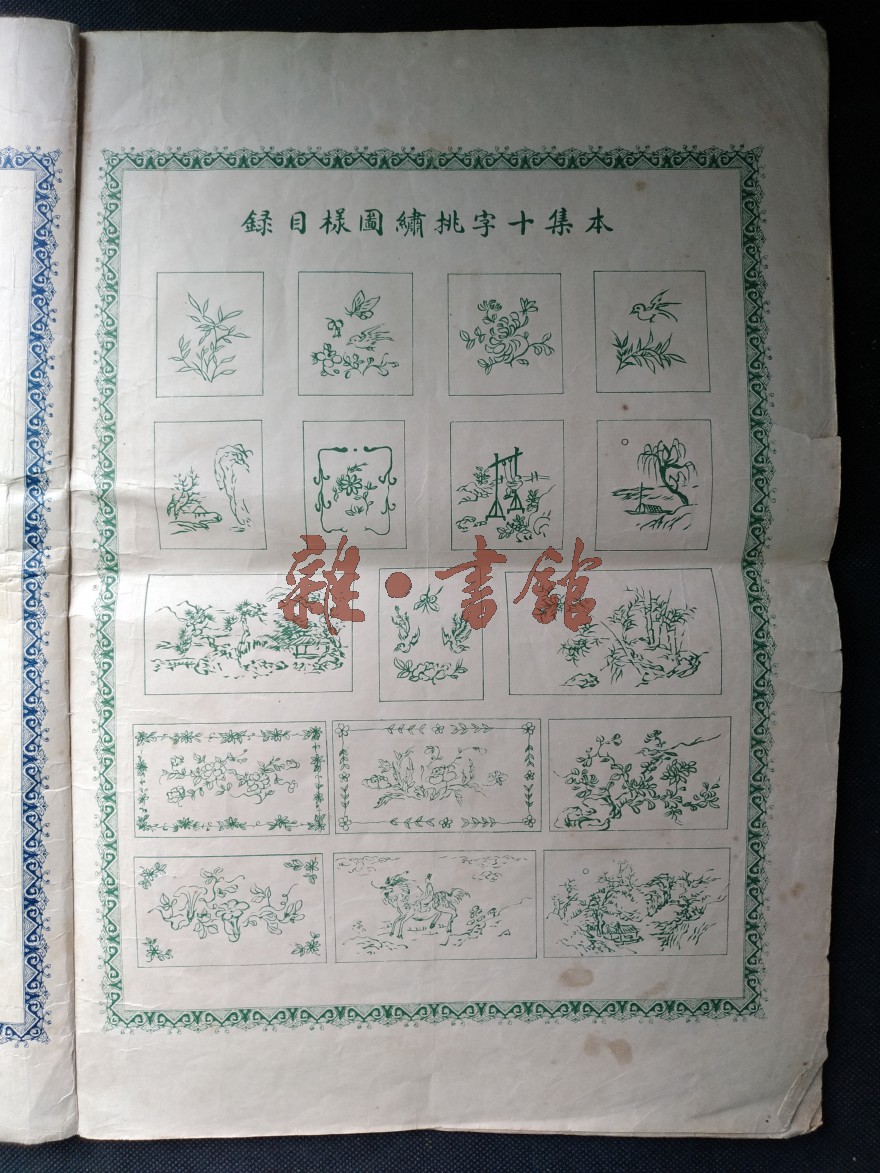 本集十字挑繡圖樣目録
雜·書館